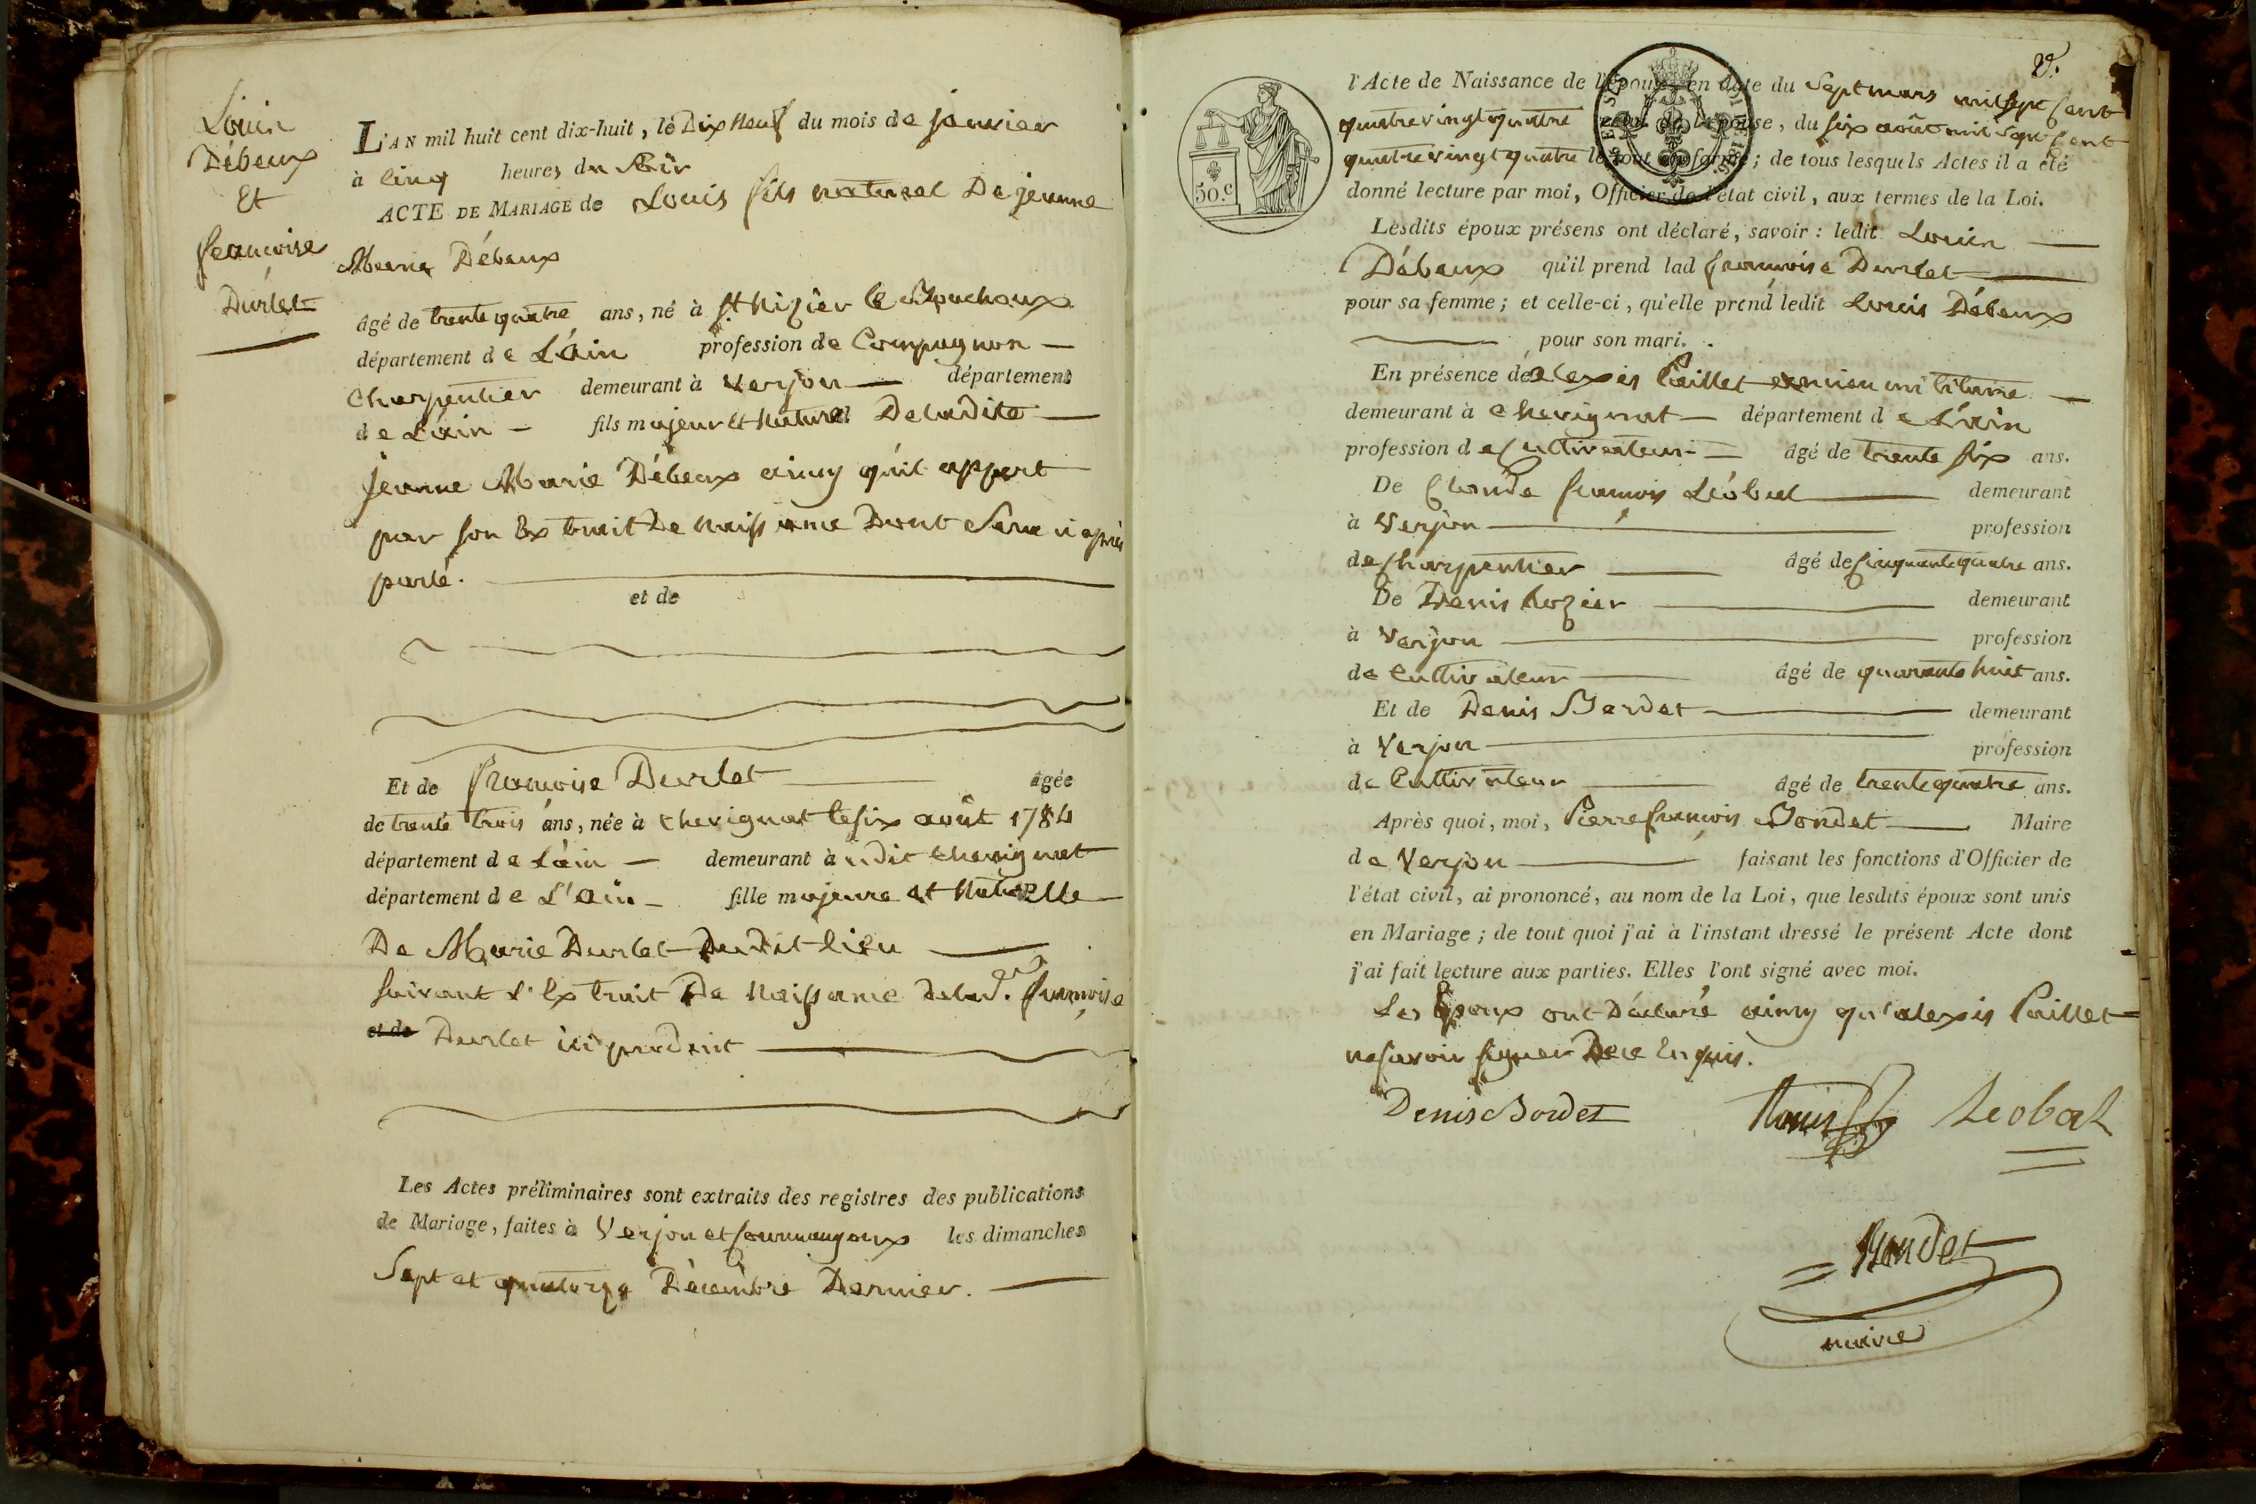 Louis
Débeaux
Et
francoise
Durlet
L'AN mil huit cent dix-huit, le Dix Neuf du mois de janvier
à Cinq heures du Soir
ACTE DE MARIAGE de Louis fils naturel De jeanne
Marie Débeaux
âgé de trente quatre ans, né à St Nizier le Bouchoux
département de L'ain profession de Compagnon
Charpentier demeurant à Verjon département
de L'ain fils majeur et Naturel De ladite
jeanne Marie Débeaux ainsy qu'il appert
par son Extrait De Naissance Dont Sera ci après
parlé.
et de
Et de francoise Durlet âgée
de trente trois ans, née à Chevignat le six août 1784
département de L'ain demeurant à udit Chevignat
département de L'ain fille majeure et Naturelle
De Marie Durlet Dudit lieu
suivant L'Extrait De Naissance De lad. francoise
et de Durlet
Les Actes préliminaires sont extraits des registres des publications
de Mariage, faites à Verjon et Courmangoux les dimanches
Sept et quatorze Décembre Dernier.
V.
50.c
l'Acte de Naissance de l'époux, en date du Sept mars mil sept Cent
quatrevingt quatre celui de l'épouse, du six août mil Sept Cent
quatrevingt quatre le tout en forme; de tous lesquels Actes il a été
donné lecture par moi, Officier de l'état civil, aux termes de la Loi.
Lesdits époux présens ont déclaré, savoir: ledit Louis
Débeaux qu'il prend lad francoise Durlet
pour sa femme; et celle-ci, qu'elle prend ledit Louis Débeaux
pour son mari.
En présence de alexis Paillet ancien militaire
demeurant à Chevignat département de L'ain
profession de Cultivateur âgé de trente six ans.
De Claude francois Léobal demeurant
à Verjon profession
de Charpentier âgé de Cinquante quatre ans.
De Denis demeurant
à Verjon profession
de Cultivateur âgé de quarante huit ans.
Et de Denis Bordet demeurant
à Verjon profession
de Cultivateur âgé de trente quatre ans.
Après quoi, moi, Pierre francois Bondet Maire
de Verjon faisant les fonctions d'Officier de
l'état civil, ai prononcé, au nom de la Loi, que lesdits époux sont unis
en Mariage; de tout quoi j'ai à l'instant dressé le présent Acte dont
j'ai fait lecture aux parties. Elles l'ont signé avec moi.
Les Epoux ont Déclaré ainsy qu'alexis Paillet
ne savoir signer De ce Enquis.
Denis Bordet Leobal
Bondet
maire